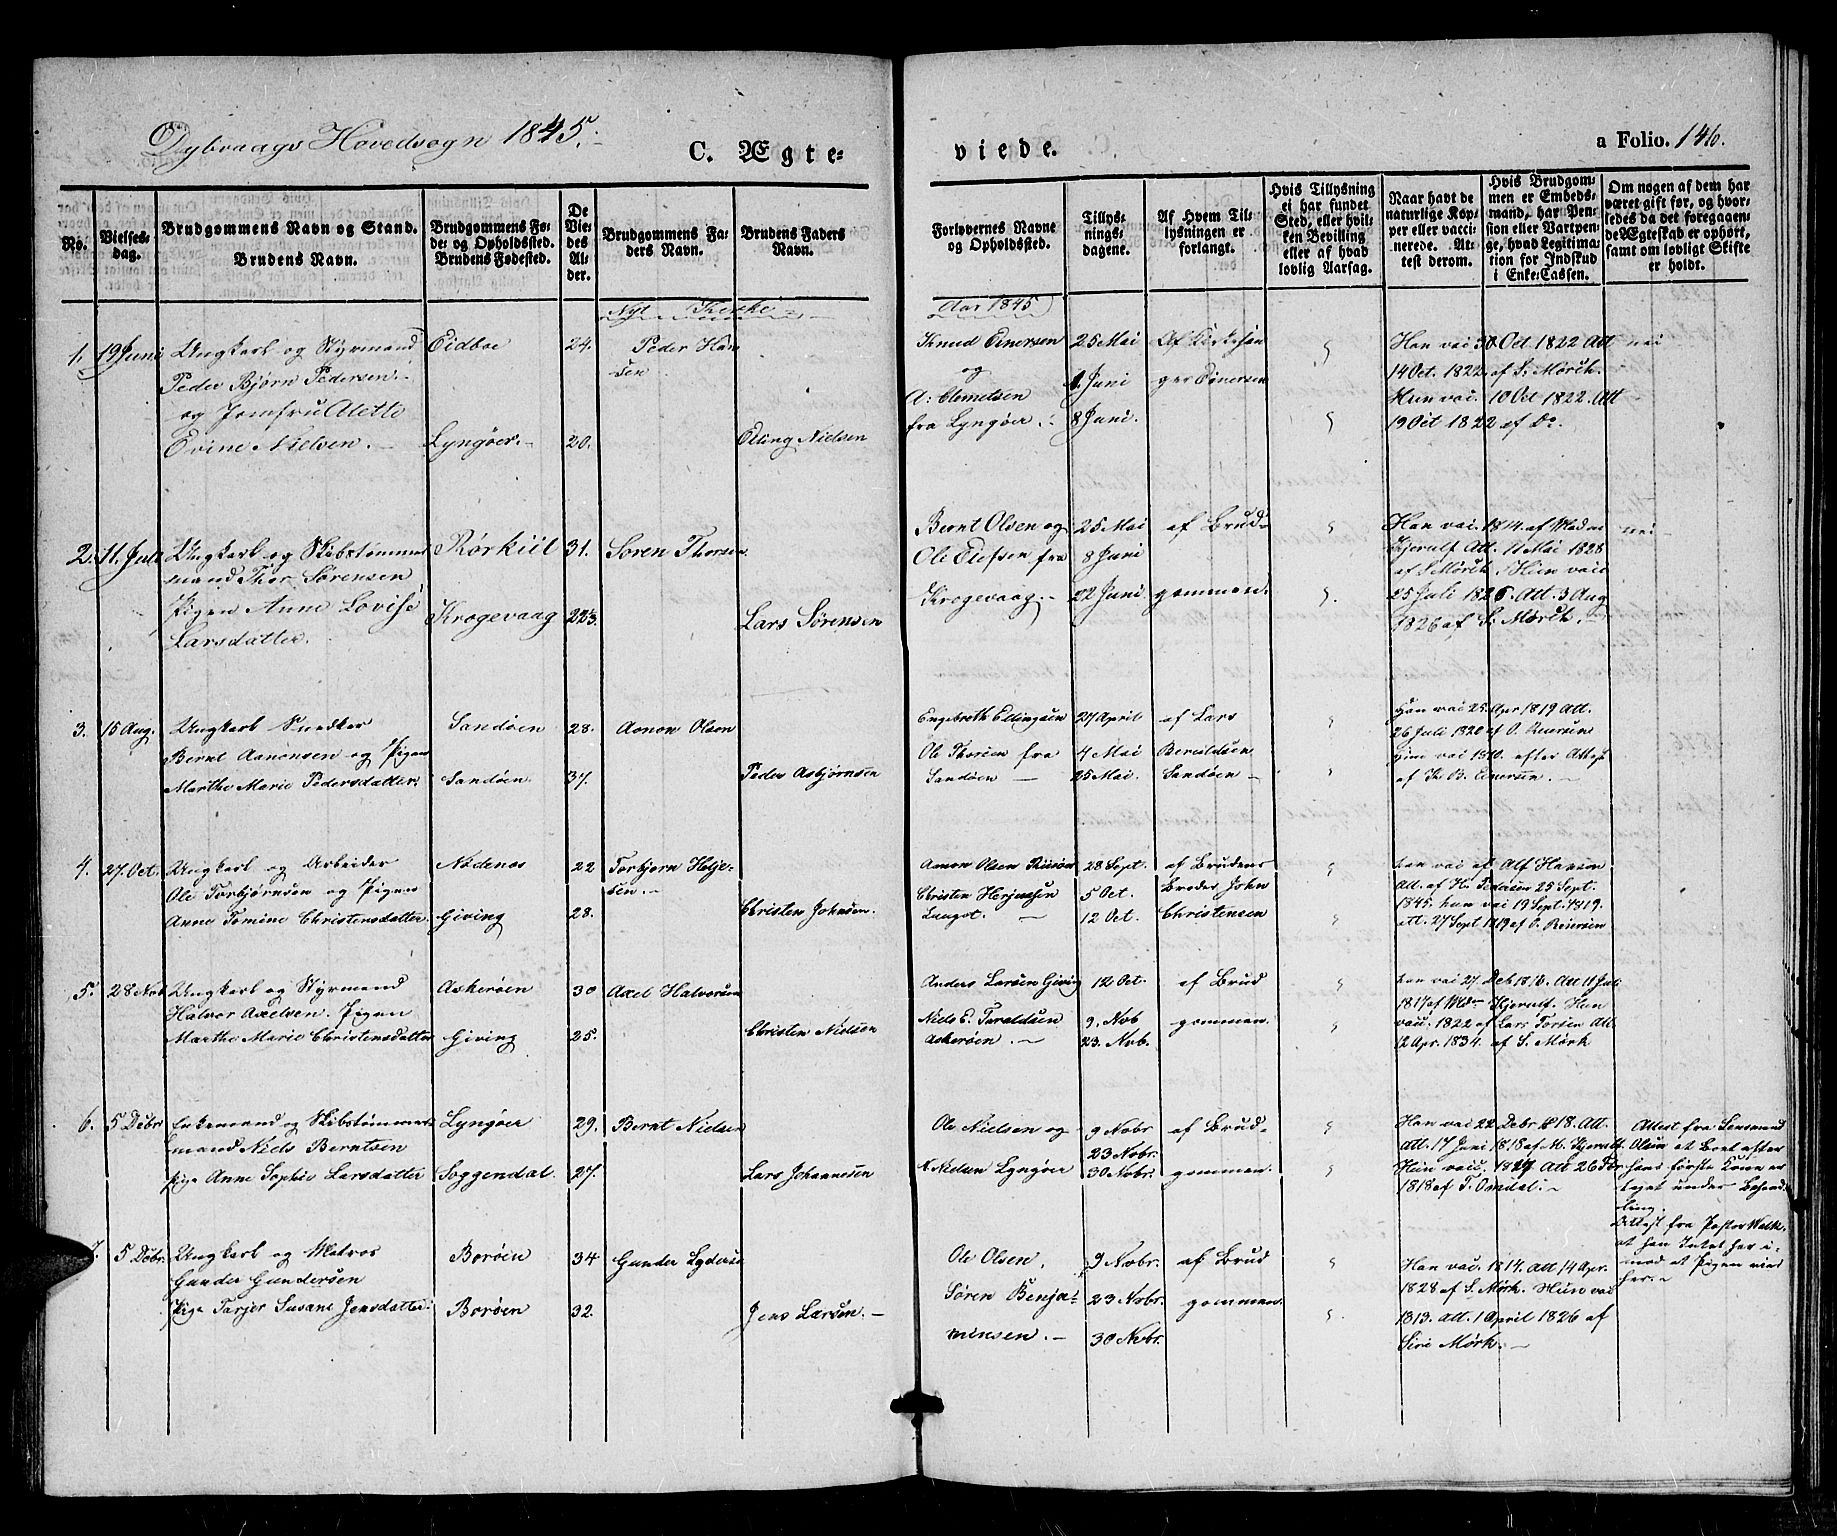 Dybvaags Hovedsogn 1845.
C. Ægte-
viede.
a Folio. 146.
No.
Vielses-
dag.
Brudgommens Navn og Stand.
Brudens Navn.
Brudgommens Fø-
de- og Opholdssted.
Brudens Fødested.
De
Vie-
des
Al-
der.
Brudgommens Fa-
ders Navn.
Brudens Faders
Navn.
Forlovernes Navne
og Opholdssted.
Tillys-
nings-
dagene.
Af Hvem Til-
lysningen er
forlangt.
Hvis Tillysning
ei har fundet
Sted, eller hvil-
ken Bevilling
eller af hvad
lovlig Aarsag.
Naar havt de
naturlige Kop-
per eller vacci-
nerede. At-
test derom.
Hvis Brudgom-
men er Embeds-
mand, har Pen-
sion eller Vartpen-
ge, hvad Legitima-
tion for Indskud
i Enke-Cassen.
Om nogen af dem har
været gift før, og hvor-
ledes da det foregaaen-
de Ægteskab er ophørt,
samt om lovligt Skifte
er holdt.
Nyt Kirke
Aar 1845
1. 19 Juni
Ungkarl og Styrmand
Peder Bjørn Pedersen
og Jomfru Alette
Evine Nielsen.
Eidboe
Lyngøer.
24.
20.
Peder Han
sen
Elling Nielsen
Knud Einersen
og
A: Clemetsen
fra Lyngøer
25 Mai
1 Juni
8 Juni.
Han vac 30 Oct. 1822 Att
14 Oct. 1822 af S. Mørch.
Hun vac. 10 Oct 1822. Att
19 Oct 1822 af Do.
nei
2. 11. Juli
Ungkarl og Skibstømmer
mand Thor Sørensen
Pigen Anne Lovise
Larsdatter.
Rørkiil
Krogevaag
31.
Soren Thorsen
Lars Sørensen
Bernt Olsen og
Ole Olefsen fra
Krogevaag.
25 Mai
8 Juni
22 Juni.
af Brud-
gommen.
Han vac. 1814. af Madm
Kjerulf Att. 11 Mai 1828
af S Mørch. Hun vac
25 Juli 1826. Att. 3 Aug
1826 af S. Mørch.
nei
3. 15 Aug.
Ungkarl Snedker
Bernt Aanonsen og Pigen
Marthe Marie Pedersdatter
Sandøen
Sandøen
28.
37.
Aanon Olsen
Peder Asbjørnsen
Engebreth Ellingsen
Ole Thorsen fra
Sandøen
27 April
4 Mai
25 Mai.
af Lars
Beruldsen
Sandøen
Han vac 25 Apr 1819 Att.
26 Juli 1820 af O. Reiersen
Hun vac 1810. efter Attest
af K. B. Einersen.
4. 27. Oct.
Ungkarl og Arbeider
Ole Torbjørnsen og Pigen
Anne Tomine Christensdatter
Nødenes
Giving
22
28.
Torbjørn Helje-
sen.
Christen Johnsen.
Aanon Olsen
28 Sept.
5 Oct.
12 Oct.
af Brudens
Broder John
Christensen
han vac af Alf Hansen
Att. af H. Pedersen 25 Sept.
1845. hun vac 19 Sept. 1819.
att. 27 Sept 1819 af O. Reiersen
5. 28 Nob
Ungkarl og Styrmand
Halvor Axelsen. Pigen
Marthe Marie Christensdatter
Askerøen
Giving
30
25.
Axel Halvorsen
Christen Nielsen
Anders Larsen Giving
Niels C. Taraldsen
Askerøen.
12 Oct.
9. Nob
23. Nob.
af Brud
gommen.
1817 af Mdm Kjerulf. Hun
vac. 1822 af Lars Torsen Att.
12 Apr. 1834. af S. Mørk
6. 5 Debr
Enkemand og Skibstømmer
mand Niels Berntsen
pige Anne Sophie Larsdatter
Lyngøer
Soggendal.
29.
27.
Bernt Nielsen
Lars Johannesen
Ole Nielsen og
N. Nielsen Lyngøer
9 Nobr
23 Nobr.
30 Nobr.
af Brud-
gommen.
Han vac 22 Debr 1818. Att.
Att. 17 Juni 1818 af M. Kjerulf
1818 af T. Omdal.
Attest fra Lensmand
Olsen at Boet efter
hans første Kone er
taget under Behand
ling.
Attest fra Pastor Walk
at han Intet har i-
mod at Pigen vies
her.
7. 5 Debr.
Ungkarl og Matros
Gunder Gundersen
pige Tarjer Susane Jensdatter
Borøen
Borøen
34
32.
Gunder Lydersen
Jens Larsen.
Ole Olsen.
Søren Benja-
minsen.
9 Nobr.
23 Nobr.
30 Nobr.
af Brud
gommen.
Han vac. 1814. Att 14 Apr.
1828 af S. Mørk. Hun vac
1813. att. 1 April 1826 af
Sire Mørk.